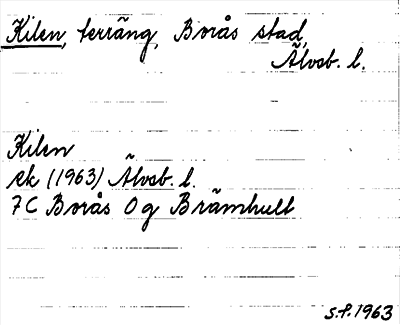 Kilen, terräng, Borås stad,
Älvsb. l.
Kilen
ek (1963) Älvsb. l.
7C Borås Og Brämhult
s.f. 1963